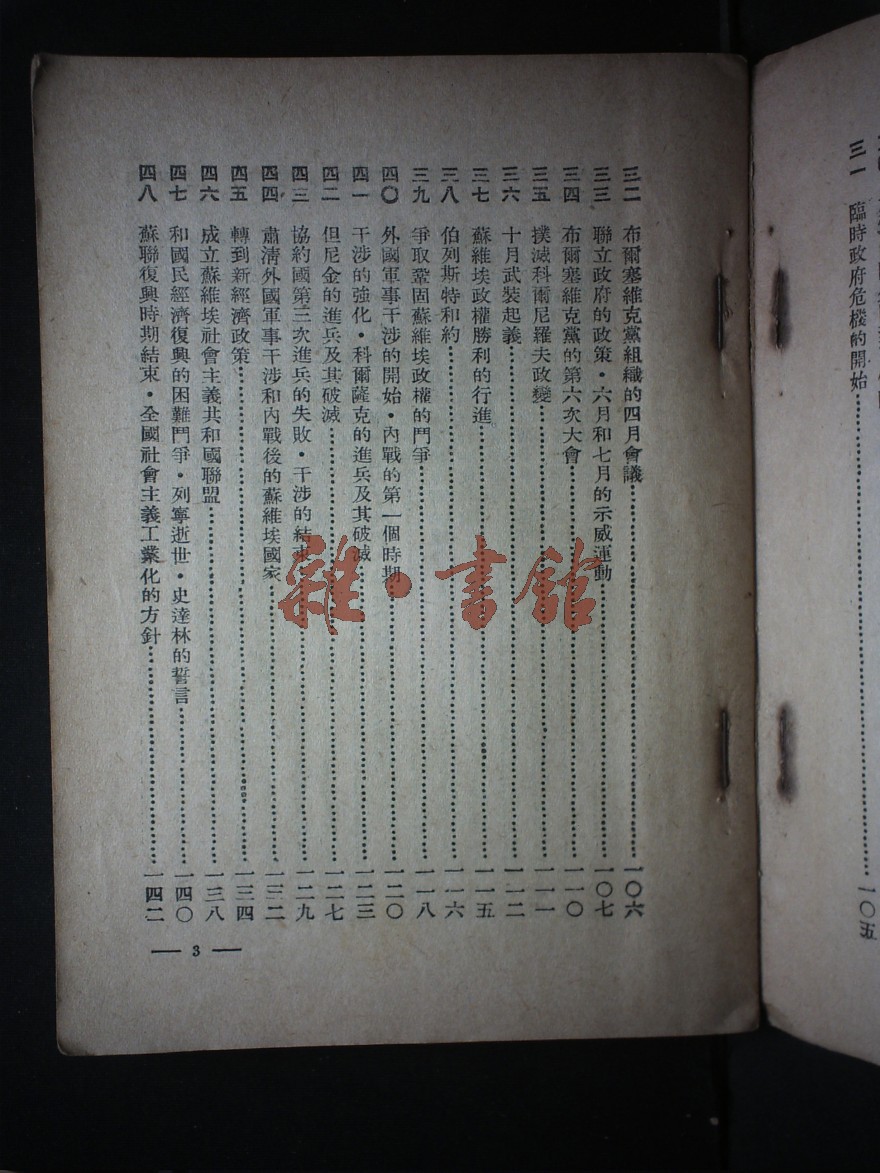 三一　臨時政府危機的開始……一〇五
三二　布爾塞維克黨組織的四月會議……一〇六
三三　聯立政府的政策・六月和七月的示威運動……一〇七
三四　布爾塞維克黨的第六次大會……一一〇
三五　撲滅科爾尼羅夫政變……一一一
三六　十月武裝起義……一一二
三七　蘇維埃政權勝利的行進……一一五
三八　伯列斯特和約……一一六
三九　爭取鞏固蘇維埃政權的鬥爭……一一八
四〇　外國軍事干涉的開始・內戰的第一個時期……一二〇
四一　干涉的強化・科爾薩克的進兵及其破滅……一二三
四二　但尼金的進兵及其破滅……一二七
四三　協約國第三次進兵的失敗・干涉的結束……一二九
四四　肅清外國軍事干涉和內戰後的蘇維埃國家……一三二
四五　轉到新經濟政策……一三四
四六　成立蘇維埃社會主義共和國聯盟……一三八
四七　和國民經濟復興的困難鬥爭・列寧逝世・史達林的誓言……一四〇
四八　蘇聯復興時期結束・全國社會主義工業化的方針……一四二
— 3 —
雜・書館